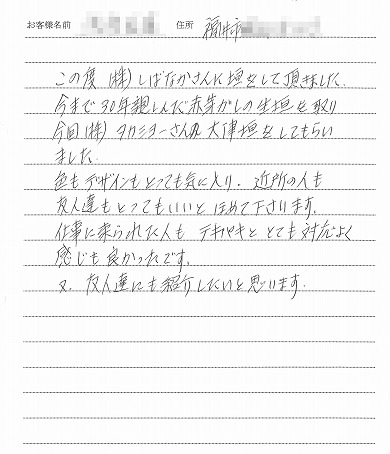 お客様名前 住所 福井市
この度(株)しばなかさんに垣をして頂きました。
今まで30年親しんだ赤芽がしの生垣を取り
今回(株)タカショーさんの大津垣をしてもらい
ました。
色もデザインもとっても気に入り、近所の人も
友人達もとってもいいとほめて下さります。
仕事に来られた人もテキパキととても対応よく
感じも良かったです。
又、友人達にも紹介したいと思います。